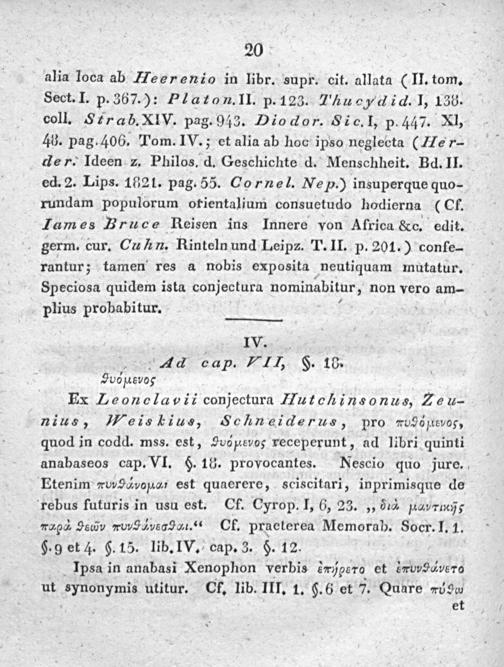 20
alia loca ab Heerenio in libr. supr. cit. allata (II. tom.
Sect. I. p. 367.): Platon. II. p. 123. Thucydid. I, 138.
coll. Strab. XIV. pag. 943. Diodor. Sic. I, p. 447. XI,
48. pag. 406. Tom. IV.; et alia ab hoc ipso neglecta (Her-
der: Ideen z. Philos. d. Geschichte d. Menschheit. Bd. II.
ed. 2. Lips. 1821. pag. 55. Cornel. Nep.) insuperque quo-
rundam populorum orientalium consuetudo hodierna (Cf.
Iames Bruce Reisen ins Innere von Africa &c. edit.
germ. cur. Cuhn. Rinteln und Leipz. T. II. p. 201.) confe-
rantur; tamen res a nobis exposita neutiquam mutatur.
Speciosa quidem ista conjectura nominabitur, non vero am-
plius probabitur.
IV.
Ad cap. VII, §. 18.
θυόμενος
Ex Leonclavii conjectura Hutchinsonus, Zeu-
nius, Weiskius, Schneiderus, pro πυθόμενος,
quod in codd. mss. est, θυόμενος receperunt, ad libri quinti
anabaseos cap. VI. §. 18. provocantes. Nescio quo jure.
Etenim πυνθάνομαι est quaerere, sciscitari, inprimisque de
rebus futuris in usu est. Cf. Cyrop. I, 6, 23. „διὰ μαντικῆς
παρὰ θεῶν πυνθάνεσθαι.“ Cf. praeterea Memorab. Socr. I. 1.
§. 9 et 4. §. 15. lib. IV. cap. 3. §. 12.
Ipsa in anabasi Xenophon verbis ἐπήρετο et ἐπυνθάνετο
ut synonymis utitur. Cf. lib. III. 1. §. 6 et 7. Quare πύθω
et